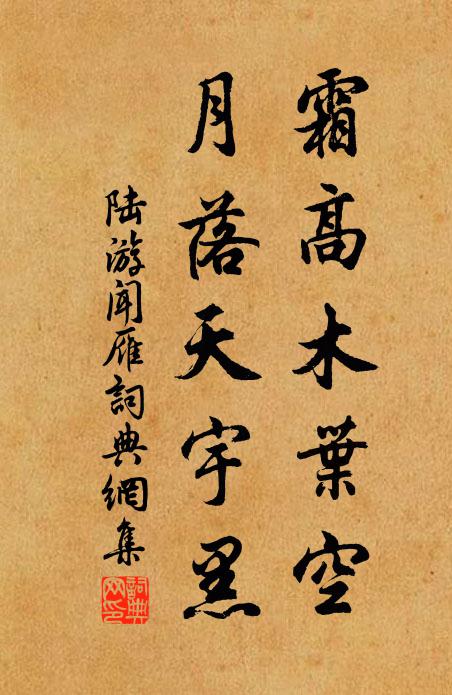 霜高木葉空
月落天宇黑
陆游闻雁詞典網集
詞典網印